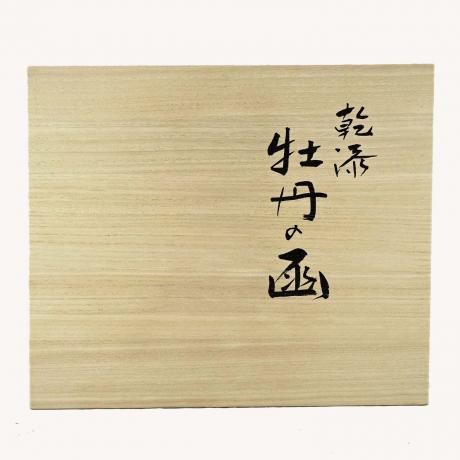 乾漆
牡丹の函